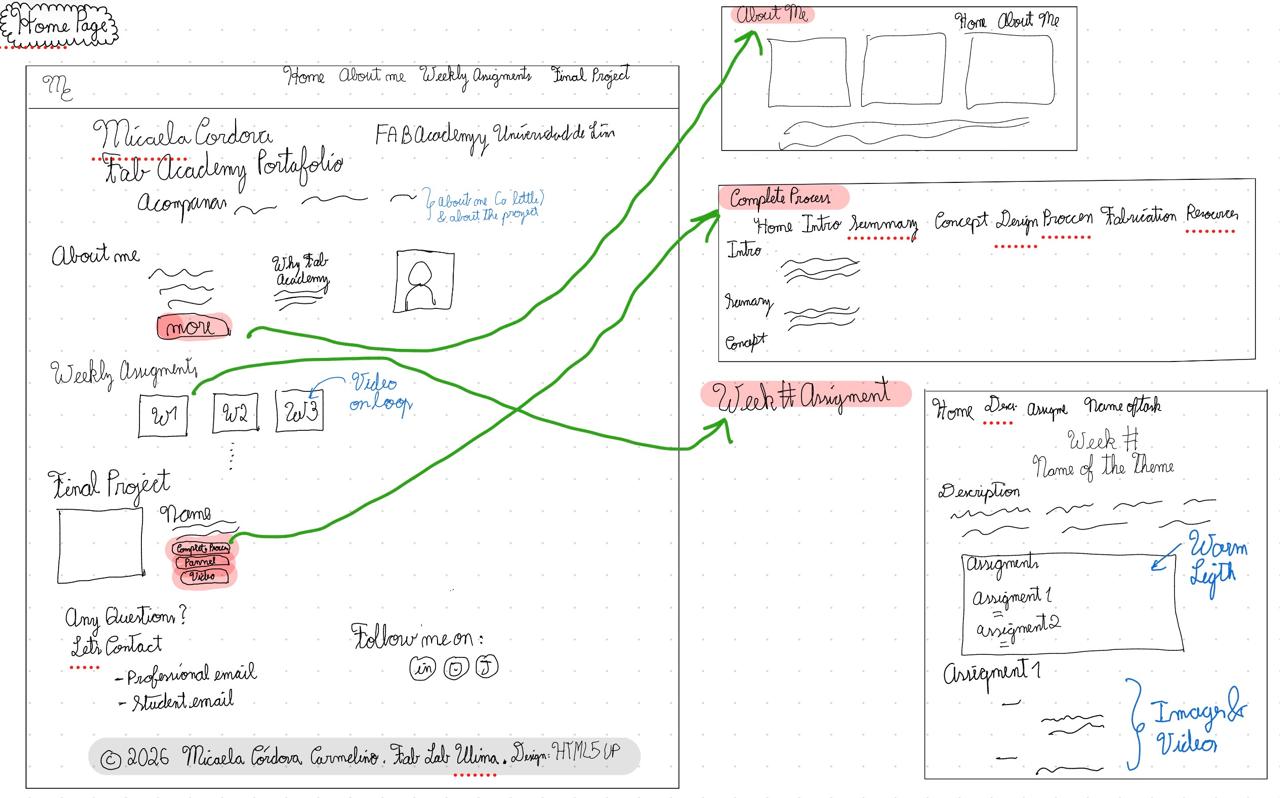 Home Page
Mc
Home About me Weekly Assigments Final Project
Micaela Cordova
Fab Academy Portafolio
FAB Academy Universidad de Lima
Acompanar
about me (a little)
& about the project
About me
Why Fab
Academy
more
Weekly Assigments
W1 W2 W3
Video
on loop
Final Project
Name
Complete Process
Pannel
Video
Any Questions?
Lets Contact
- Professional email
- Student email
Follow me on:
in
© 2026 Micaela Córdova Carmelino. Fab Lab Ulima. Design: HTML5 UP
About Me
Home About Me
Complete Process
Home Intro Summary Concept Design Proccen Fabrication Resources
Intro
Sumary
Concept
Week # Assigment
Home Desc. assigme Name of task
Week #
Name of the Theme
Description
Assigments
Assigment 1
assigment 2
Warm
Legth
Assigment 1
Images &
Videos